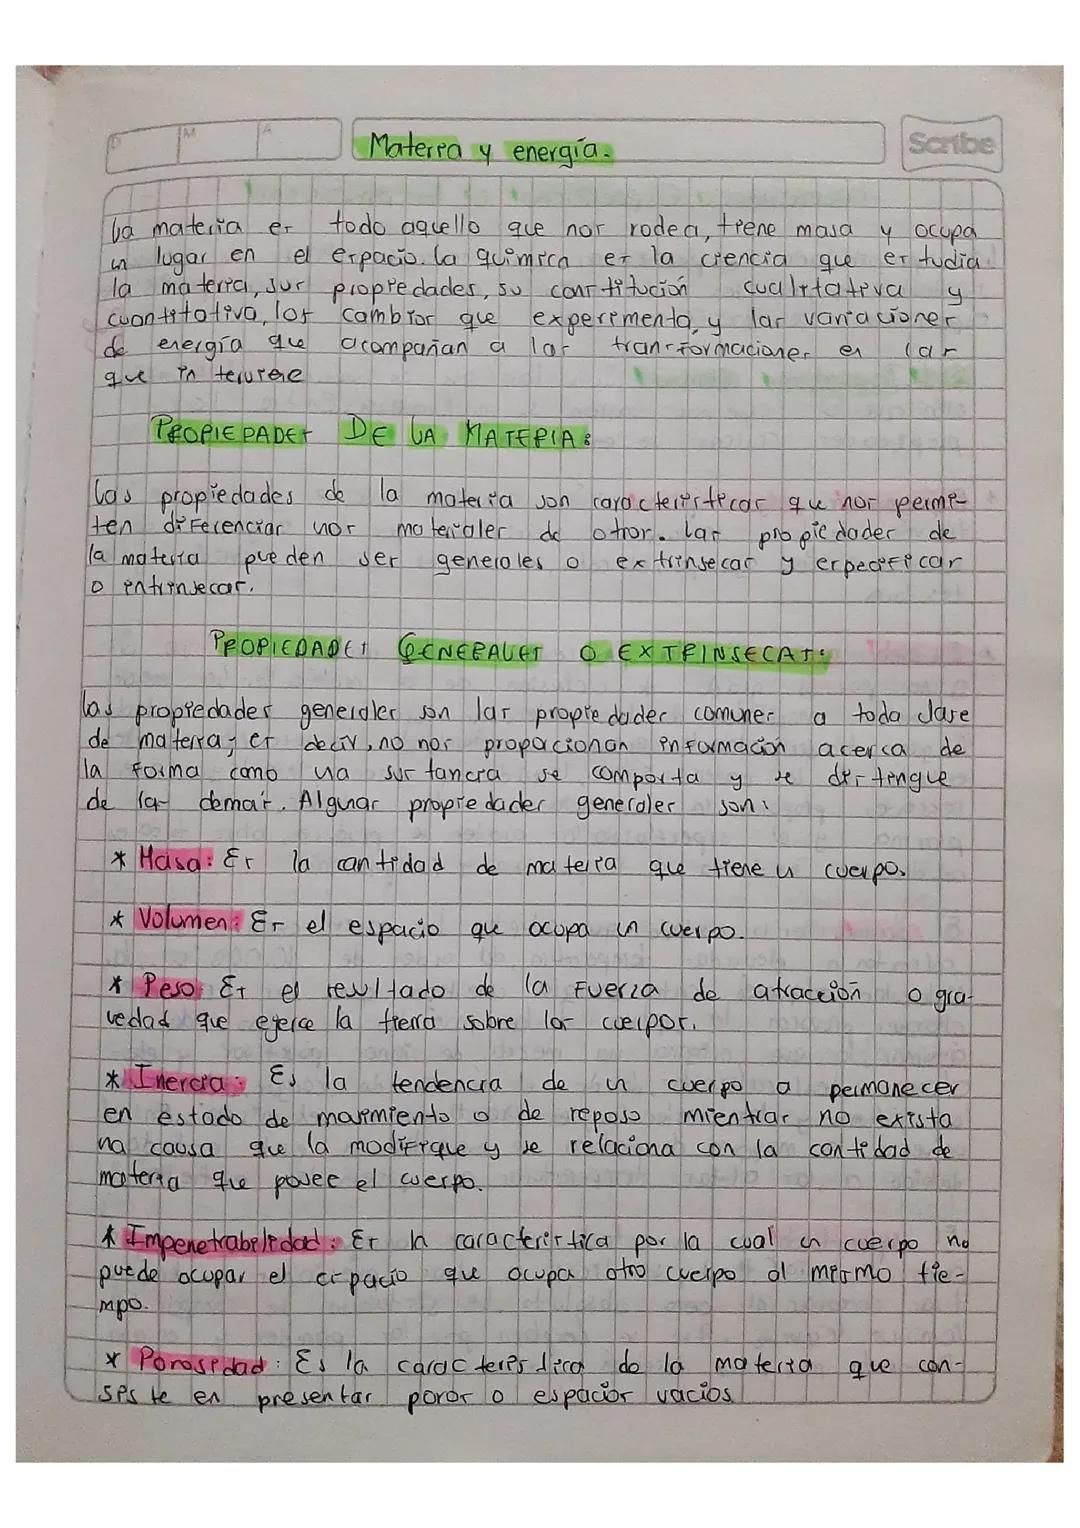 D M A
Materia y energía.
Scribe
La materia es todo aquello que nos rodea, tiene masa y ocupa
un lugar en el espacio. La química es la ciencia que estudia
la materia, sus propiedades, su constitución cualitativa y
cuantitativa, los cambios que experimenta, y las variaciones
de energía que acompañan a las transformaciones en las
que interviene
PROPIEDADES DE LA MATERIA:
Las propiedades de la materia son características que nos permi-
ten diferenciar unos materiales de otros. Las propiedades de
la materia pueden ser generales o extrinsecas y especificas
o intrinsecas.
PROPIEDADES GENERALES O EXTRINSECAS:
Las propiedades generales son las propiedades comunes a toda clase
de materia; es decir, no nos propocionan información acerca de
la forma como una sustancia se comporta y se distingue
de las demás. Algunas propiedades generales son:
* Masa: Es la cantidad de materia que tiene un cuerpo.
* Volumen: Es el espacio que ocupa un cuerpo.
* Peso: Es el resultado de la fuerza de atracción o gra-
vedad que ejerce la tierra sobre los cuerpos.
* Inercia: Es la tendencia de un cuerpo a permanecer
en estado de movimiento o de reposo mientras no exista
una causa que la modifique y se relaciona con la cantidad de
materia que posee el cuerpo.
* Impenetrabilidad: Es la característica por la cual un cuerpo no
puede ocupar el espacio que ocupa otro cuerpo al mismo tie-
mpo.
* Porosidad: Es la característica de la materia que con-
siste en presentar poros o espacios vacíos